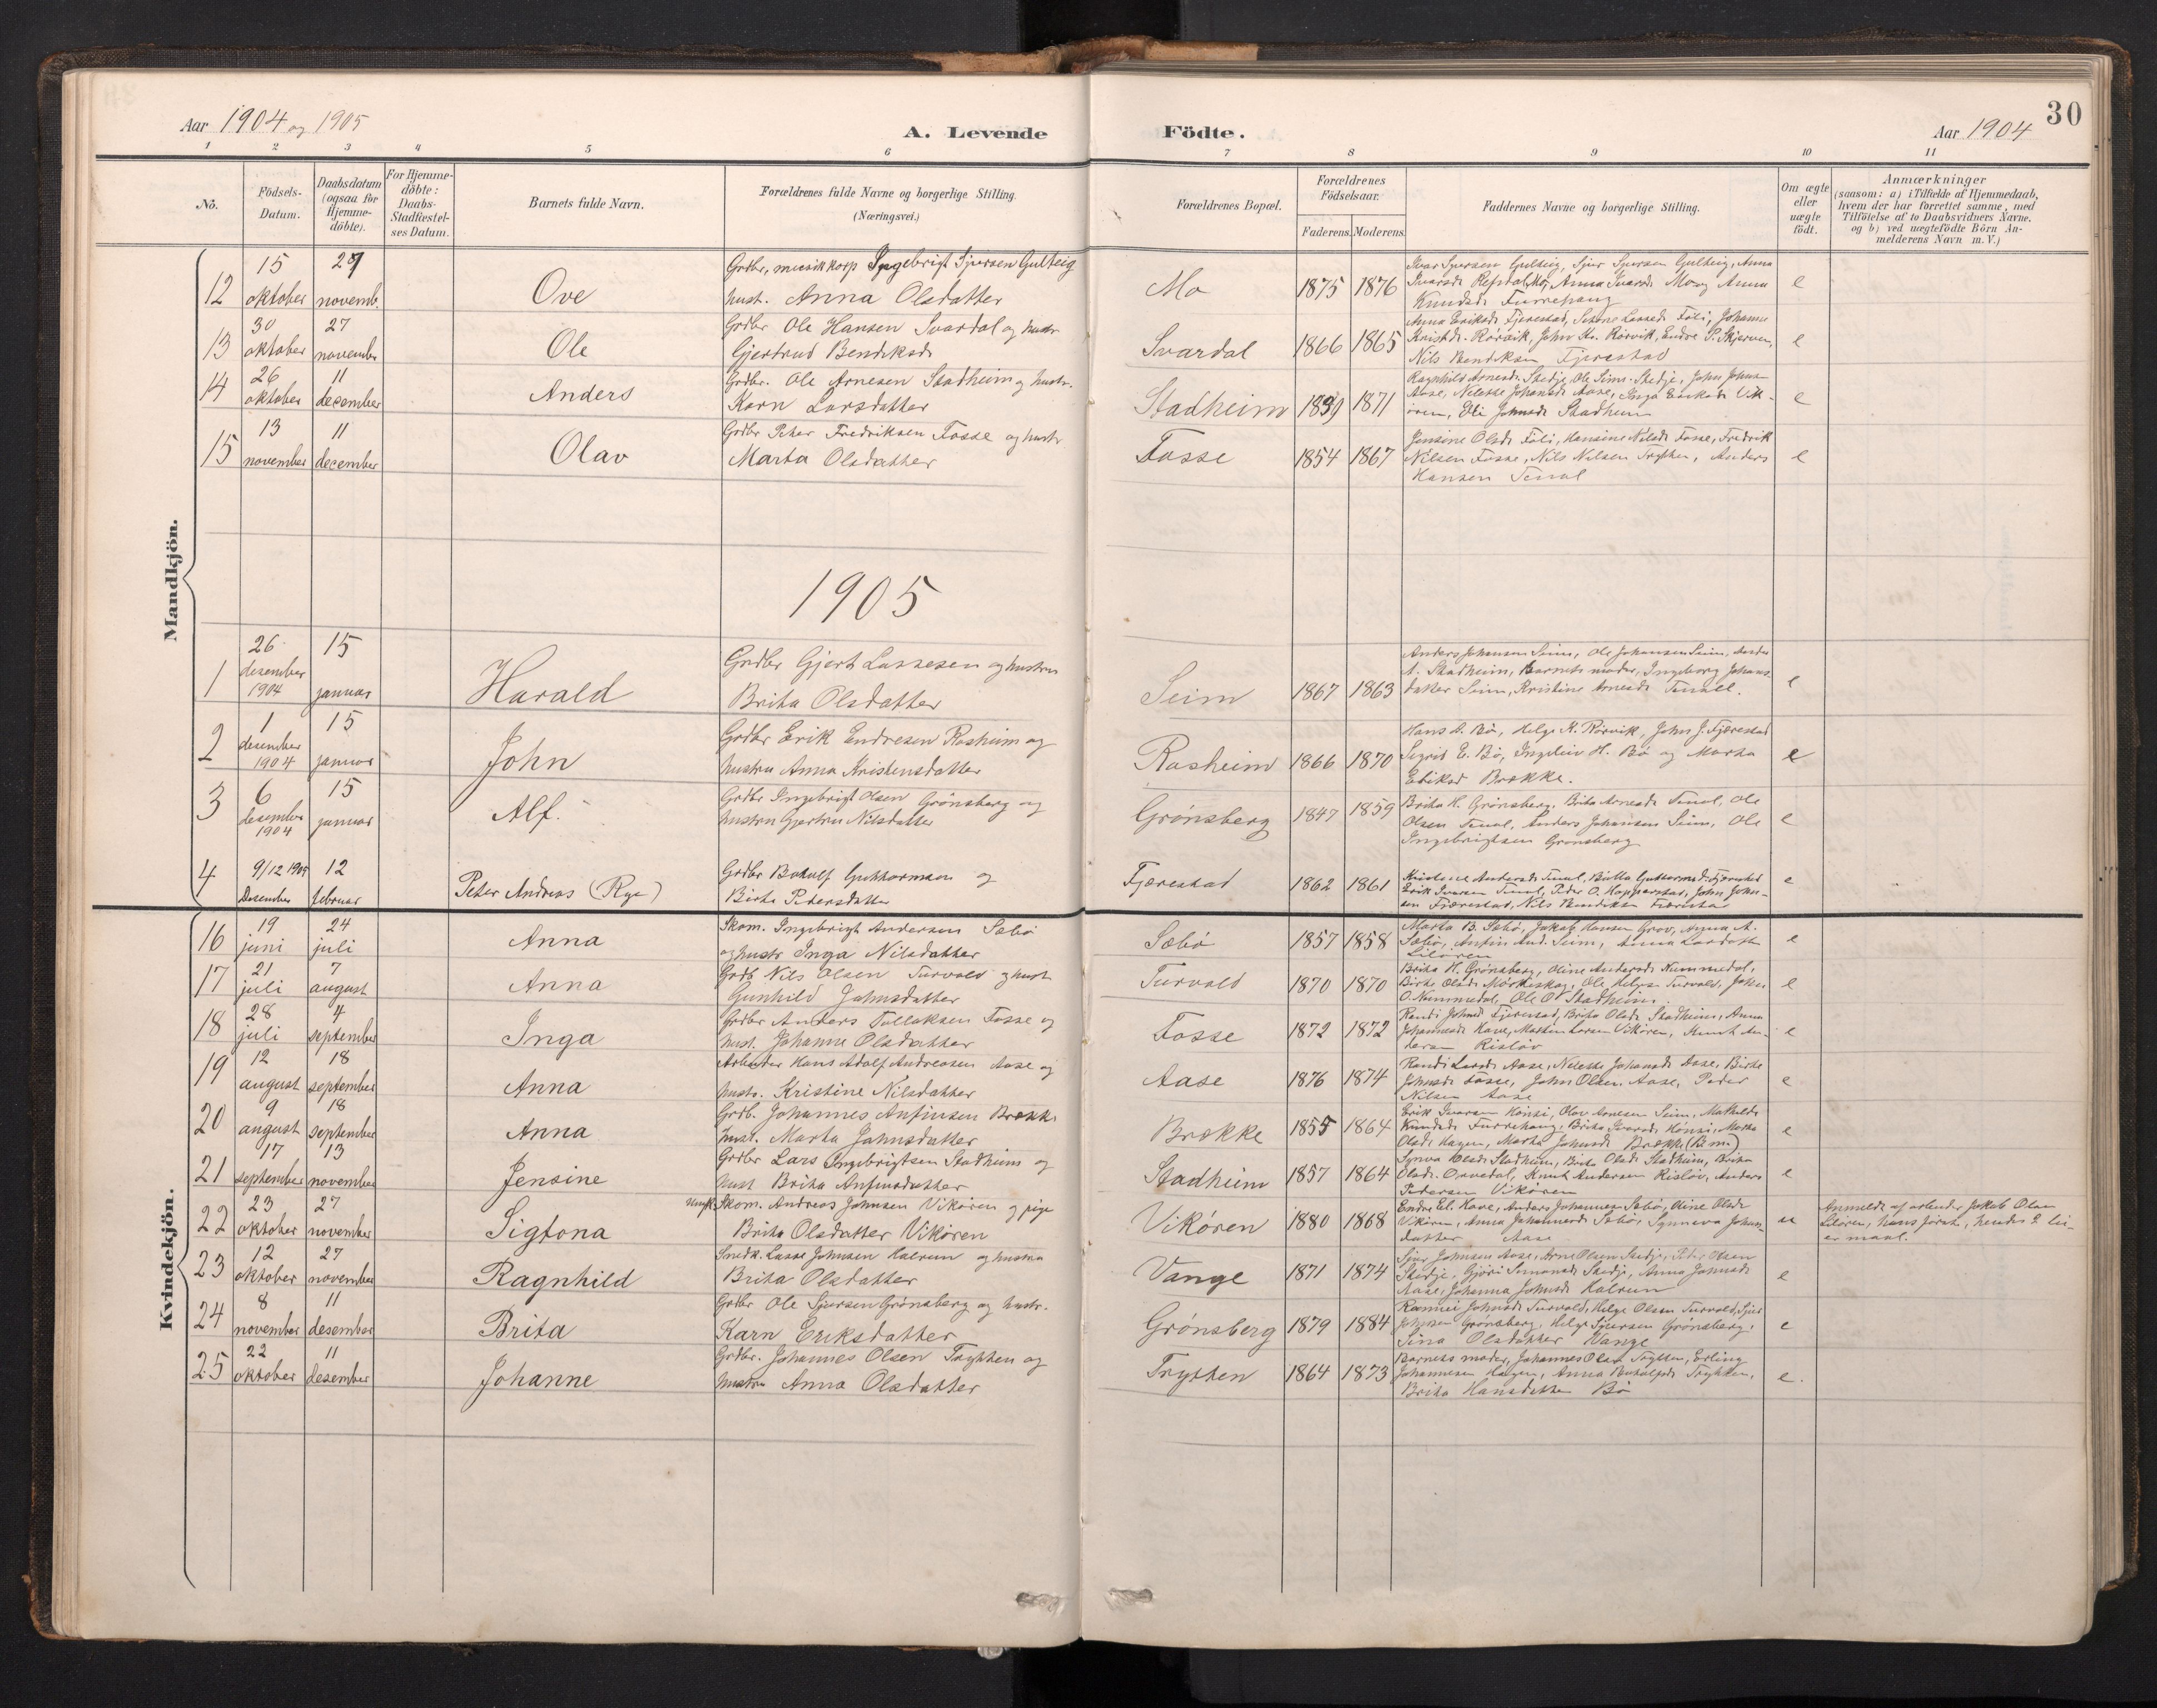 Aar 1904 og 1905
A. Levende
Födte.
Aar 1904
30
1 2 3 4 5 6 7 8 9 10 11
No.
Födsels-Datum.
Daabsdatum (ogsaa for Hjemme-döbte).
For Hjemme-döbte: Daabs-Stadfæstel-ses Datum.
Barnets fulde Navn.
Forældrenes fulde Navne og borgerlige Stilling. (Næringsvei.)
Forældrenes Bopæl.
Forældrenes Födselsaar.
Faderens. Moderens.
Faddernes Navne og borgerlige Stilling.
Om ægte eller uægte födt.
Anmærkninger
(saasom: a) i Tilfælde af Hjemmedaab, hvem der har forrettet samme, med Tilföielse af to Daabsvidners Navne, og b) ved uægtefödte Börn Anmelderens Navn m. V.)
Mandkjön.
12 15 oktober 27 novemb. Ove
Grdbr, musikkorp Ingebrigt Sjursen Gulteig
hust. Anna Olsdatter
Mo 1875 1876
Ivar Sjursen Gulteig, Sjur Sjursen Gulteig, Anna
e
13 30 oktober 27 november Ole
Grdbr Ole Hansen Svardal og hustr
Gjertrud Bendiksd
Svardal 1866 1865
Nils Bendiksen Fjærestad
e
14 26 oktober 11 december Anders
Grdbr. Ole Arnesen Stadheim og hustr.
Karn Larsdatter
Stadheim 1871
Ragnhild Arnesd. Skedje, Ole Sims. Skedje, John Johns
Aase, Nelette Johansd Aase, Inga Eriksd. Vik-
øren, Eli Johnsd. Stadheim
e
15 13 november 11 december Olav
Grdbr Peter Fredriksen Fosse og hustr
Marta Olsdatter
Fosse 1854 1867
Jensine Olsd. Föli, Hansine Nilsd. Fosse, Fredrik
Nilsen Fosse, Nils Nilsen Trytten, Anders
Hansen Tenal
e
1905
1 26 desember 1904 15 januar Harald
Grdbr Gjert Lassesen og hustru
Brita Olsdatter
Seim 1867 1863
Anders Johansen Seim, Ole Johansen Seim, Anders
A. Stadheim, Barnets moder, Ingeborg Johans
datter Seim, Kristine Arnesd. Tenal.
e
2 1 desember 1904 15 januar John
Grdbr Erik Endresen Rasheim og
hustru Anna Kristensdatter
Rasheim 1866 1870
Hans A. Bö, Helge K. Rörvik, John J. Fjærestad
Sigrid E. Bö, Ingeleiv H. Bö og Marta
Eriksd Brække.
e
3 6 desember 1904 15 januar Alf.
Grdbr Ingebrigt Olsen Grönsberg og
hustru Gjertru Nilsdatter
Grönsberg 1847 1859
Brita H. Grönsberg, Brita Arnesd. Tenal, Ole
Olsen Tenal, Anders Johansen Seim, Ole
Ingebrigtsen Grönsberg
e
4 9/12 1904 Desember 12 februar Peter Andreas (Rye)
Grdbr Botolf Guttormsen og
Birte Petersdatter
Fjærestad 1862 1861
Erik Iversen Tenal, Peder O. Hopperstad, John John-
sen Fjærestad, Nils Bendiksen Fjærestad
e
Kvindekjön.
16 19 juni 24 juli Anna
Skom. Ingebrigt Andersen Sæbö
og hustr Inga Nilsdatter
Sæbö 1857 1858
Marta B. Sæbö, Jakob Hansen Grov, Anna A.
Sæbö, Anfin And. Seim, Anna Larsdatt
Liløren
e
17 21 juli 7 august Anna
Grdb Nils Olsen Turvold og hust
Gunhild Johnsdatter
Turvold 1870 1870
Brita H. Grönsberg, Oline Andersd. Nummedal,
Birte Olsd. Mörkeskog, Ole Helges. Turvold, John
O. Nummedal, Ole O. Stadheim.
e
18 28 juli 4 september Inga
Grdbr Anders Tollaksen Fosse og
hust. Johanne Olsdatter
Fosse 1872 1872
Randi Johnsd Fjærestad, Brita Olsd. Stadheim, Anna
Johannesd. Hove, Martin Larsen Vikören, Knut An-
dersen Rislöv
e
19 12 august 18 september Anna
Arbeider Hans Adolf Andreasen Aase og
hustr. Kristine Nilsdatter
Aase 1876 1874
Randi Larsd. Aase, Nelette Johansd Aase, Birte
Johnsd. Fosse, John Olsen Aase, Peder
Nilsen Aase
e
20 9 august 18 september Anna
Grdb. Johannes Anfinsen Brække
hust. Marta Johnsdatter
Brække 1855 1864
Erik Ivarsen Hönsi, Olav Arnesen Seim, Mathilde
Knudsd. Furrehaug, Brita Ivarsd. Hönsi, Marta
Olsd. Hagen, Marta Johnsd. Brække (B.m.)
e
21 17 september 13 november Jensine
Grdbr Lars Ingebrigtsen Stadheim og
hust Brita Anfinsdatter
Stadheim 1857 1864
Synva Olsd. Stadheim, Brita Olsd. Stadheim, Brita
Olsd. Orvedal, Knut Andersen Rislöv, Anders
Pedersen Vikören
e
22 23 oktober 27 november Sigtona
Ungk. Skom. Andreas Johnsen Vikören og pige
Brita Olsdatter Vikören
Vikören 1880 1868
Endre El. Hove, Anders Johannesen Sæbö, Oline Olsd.
Vikören, Anna Johannesd. Sæbö, Synneva Johans-
datter Aase
u
Anmeldt af arbeider Jakob Olsen
Liløren, hans første, hendes 2 lei-
ermaal.
23 12 oktober 27 november Ragnhild
Snedk. Lasse Johnsen Halrun og hustru
Brita Olsdatter
Vange 1871 1874
Sjur Johnsen Aase, Arne Olsen Skedje, Peter Olsen
Skedje, Gjöri Simonsd. Skedje, Anna Johnsd.
Aase, Johanna Johnsd. Halrun
e
24 8 november 11 desember Brita
Grdbr Ole Sjursen Grönsberg og hustr.
Karn Eriksdatter
Grönsberg 1879 1884
Rannei Johnsd. Turvold, Helge Olsen Turvold, Sjur
Johnsen Grönsberg, Helge Sjursen Grönsberg,
Sina Olsdatter Vange
e
25 22 oktober 11 desember Johanne
Grdbr. Johannes Olsen Trytten og
hustru Anna Olsdatter
Trytten 1864 1873
Barnets moder, Johannes Olsen Trytten, Erling
Johannesen Hagen, Anna Botolfsd. Trytten,
Brita Hansdatter Bö
e.